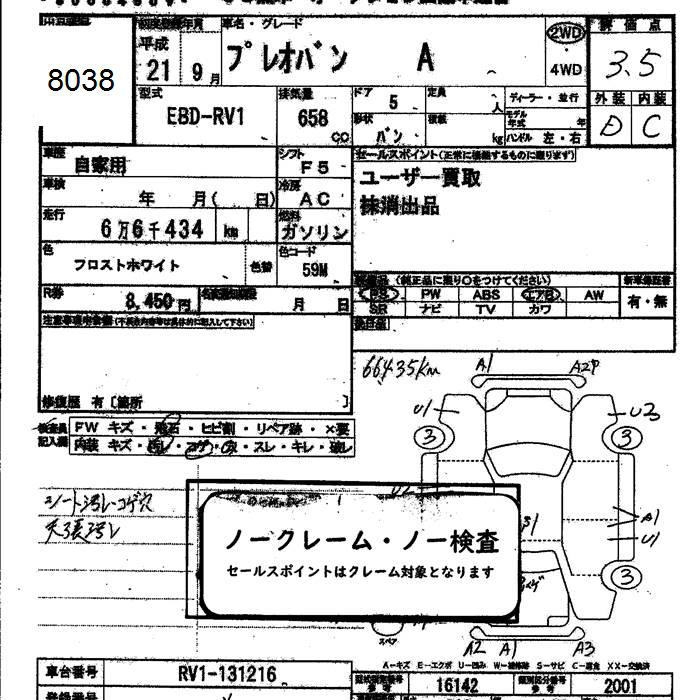 車名・グレード
評価点
平成 21 9月
プレオバン A
2WD
4WD
3.5
8038
外装 内装
D C
型式
EBD-RV1
排気量
658 cc
ドア 5
定員 人
ディーラー・並行
形状 バン
積載 kg
モデル年式 年
ハンドル 左・右
車歴
自家用
シフト
F5
セールスポイント(正常に機能するものに限ります)
ユーザー買取
抹消出品
車検
年 月( 日)
冷房
AC
走行
6万6千434 km
燃料
ガソリン
色
フロストホワイト
色替
色コード
59M
(純正品に限り○をつけてください)
新車保証書
PS PW ABS エアB AW
SR ナビ TV カワ
有・無
R券
8,450円
月 日
注意事項
修復歴 有〔箇所 〕
66435km
A1 A2P
U1 U3
3 3
検査員記入欄
FW キズ・飛石・ヒビ割・リペア跡・×要
内装 キズ・汚レ・コゲ・穴・スレ・キレ・破レ
シート汚レ・コゲ穴
天張汚レ
A1
U1
ノークレーム・ノー検査
セールスポイントはクレーム対象となります
3
スペア
A2 A1 A3
A−キズ E−エクボ U−凹み W−補修跡 S−サビ C−腐食 XX−交換済
車台番号
RV1-131216
型式指定番号
参考
16142
類別区分番号
参考
2001
登録番号